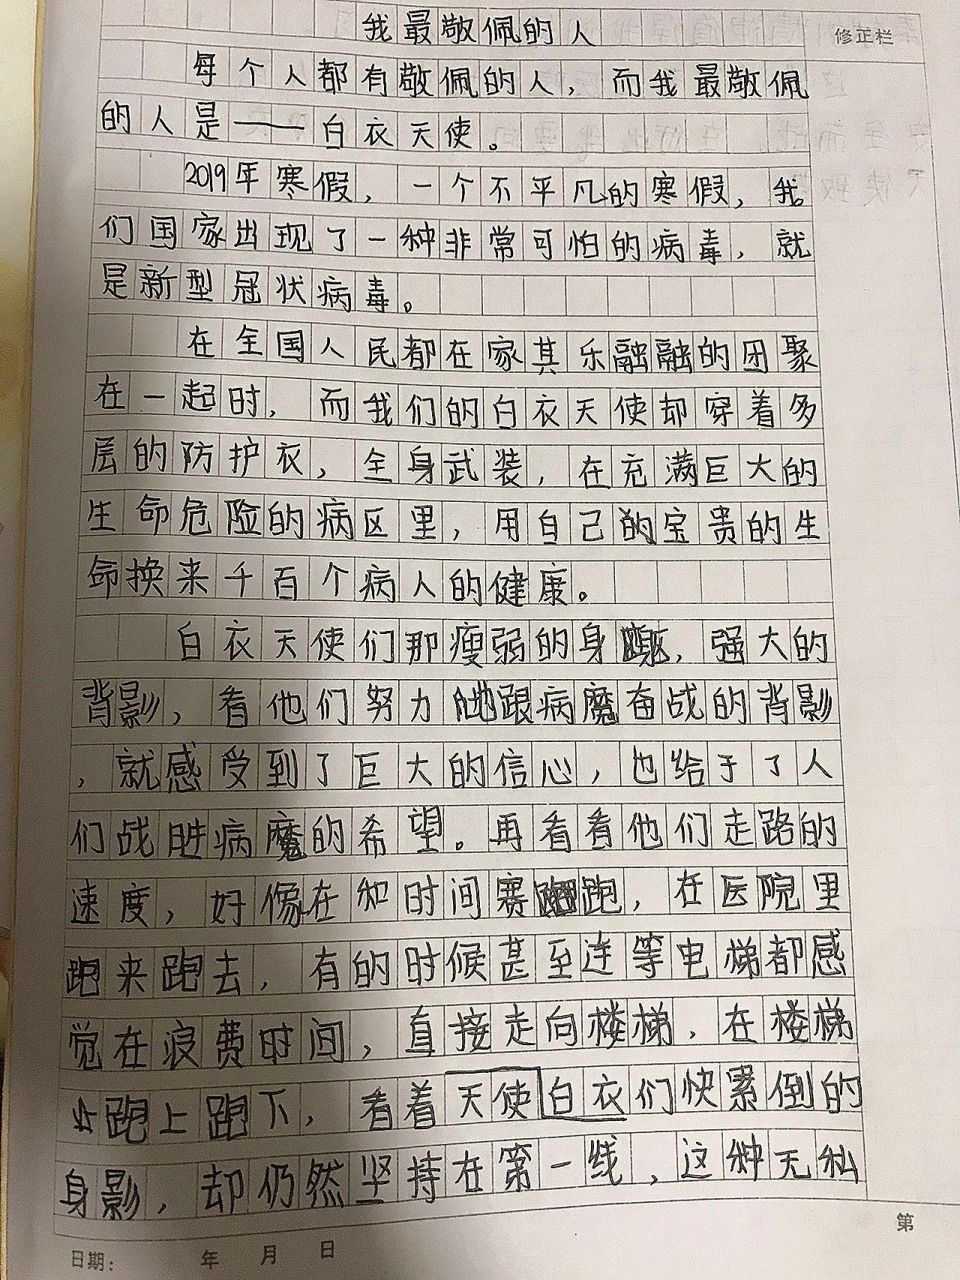 我最敬佩的人
修正栏
每个人都有敬佩的人，而我最敬佩
的人是——白衣天使。
2019年寒假，一个不平凡的寒假，我
们国家出现了一种非常可怕的病毒，就
是新型冠状病毒。
在全国人民都在家其乐融融的团聚
在一起时，而我们的白衣天使却穿着多
层的防护衣，全身武装，在充满巨大的
生命危险的病区里，用自己的宝贵的生
命换来千百个病人的健康。
白衣天使们那瘦弱的身躯，强大的
背影，看他们努力地跟病魔奋战的背影
，就感受到了巨大的信心，也给于了人
们战胜病魔的希望。再看看他们走路的
速度，好像在和时间赛跑，在医院里
跑来跑去，有的时候甚至连等电梯都感
觉在浪费时间，直接走向楼梯，在楼梯
上跑上跑下，看着天使白衣们快累倒的
身影，却仍然坚持在第一线，这种无私
第
日期： 年 月 日